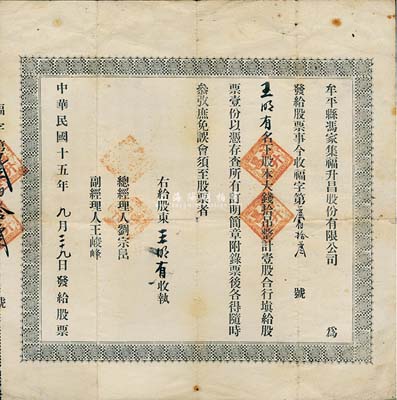 牟平縣馮家集福升昌股份有限公司 為
發給股票事今收福字第 號
王明有名下股本大錢拾吊整計壹股合行填給股
票壹份以憑存查所有訂明簡章附錄票後各得隨時
參攷庶免誤會須至股票者
右給股東 王明有 收執
總經理人劉宗邑
副經理人王峻峰
中華民國十五年 九月三九日發給股票
福字第 號